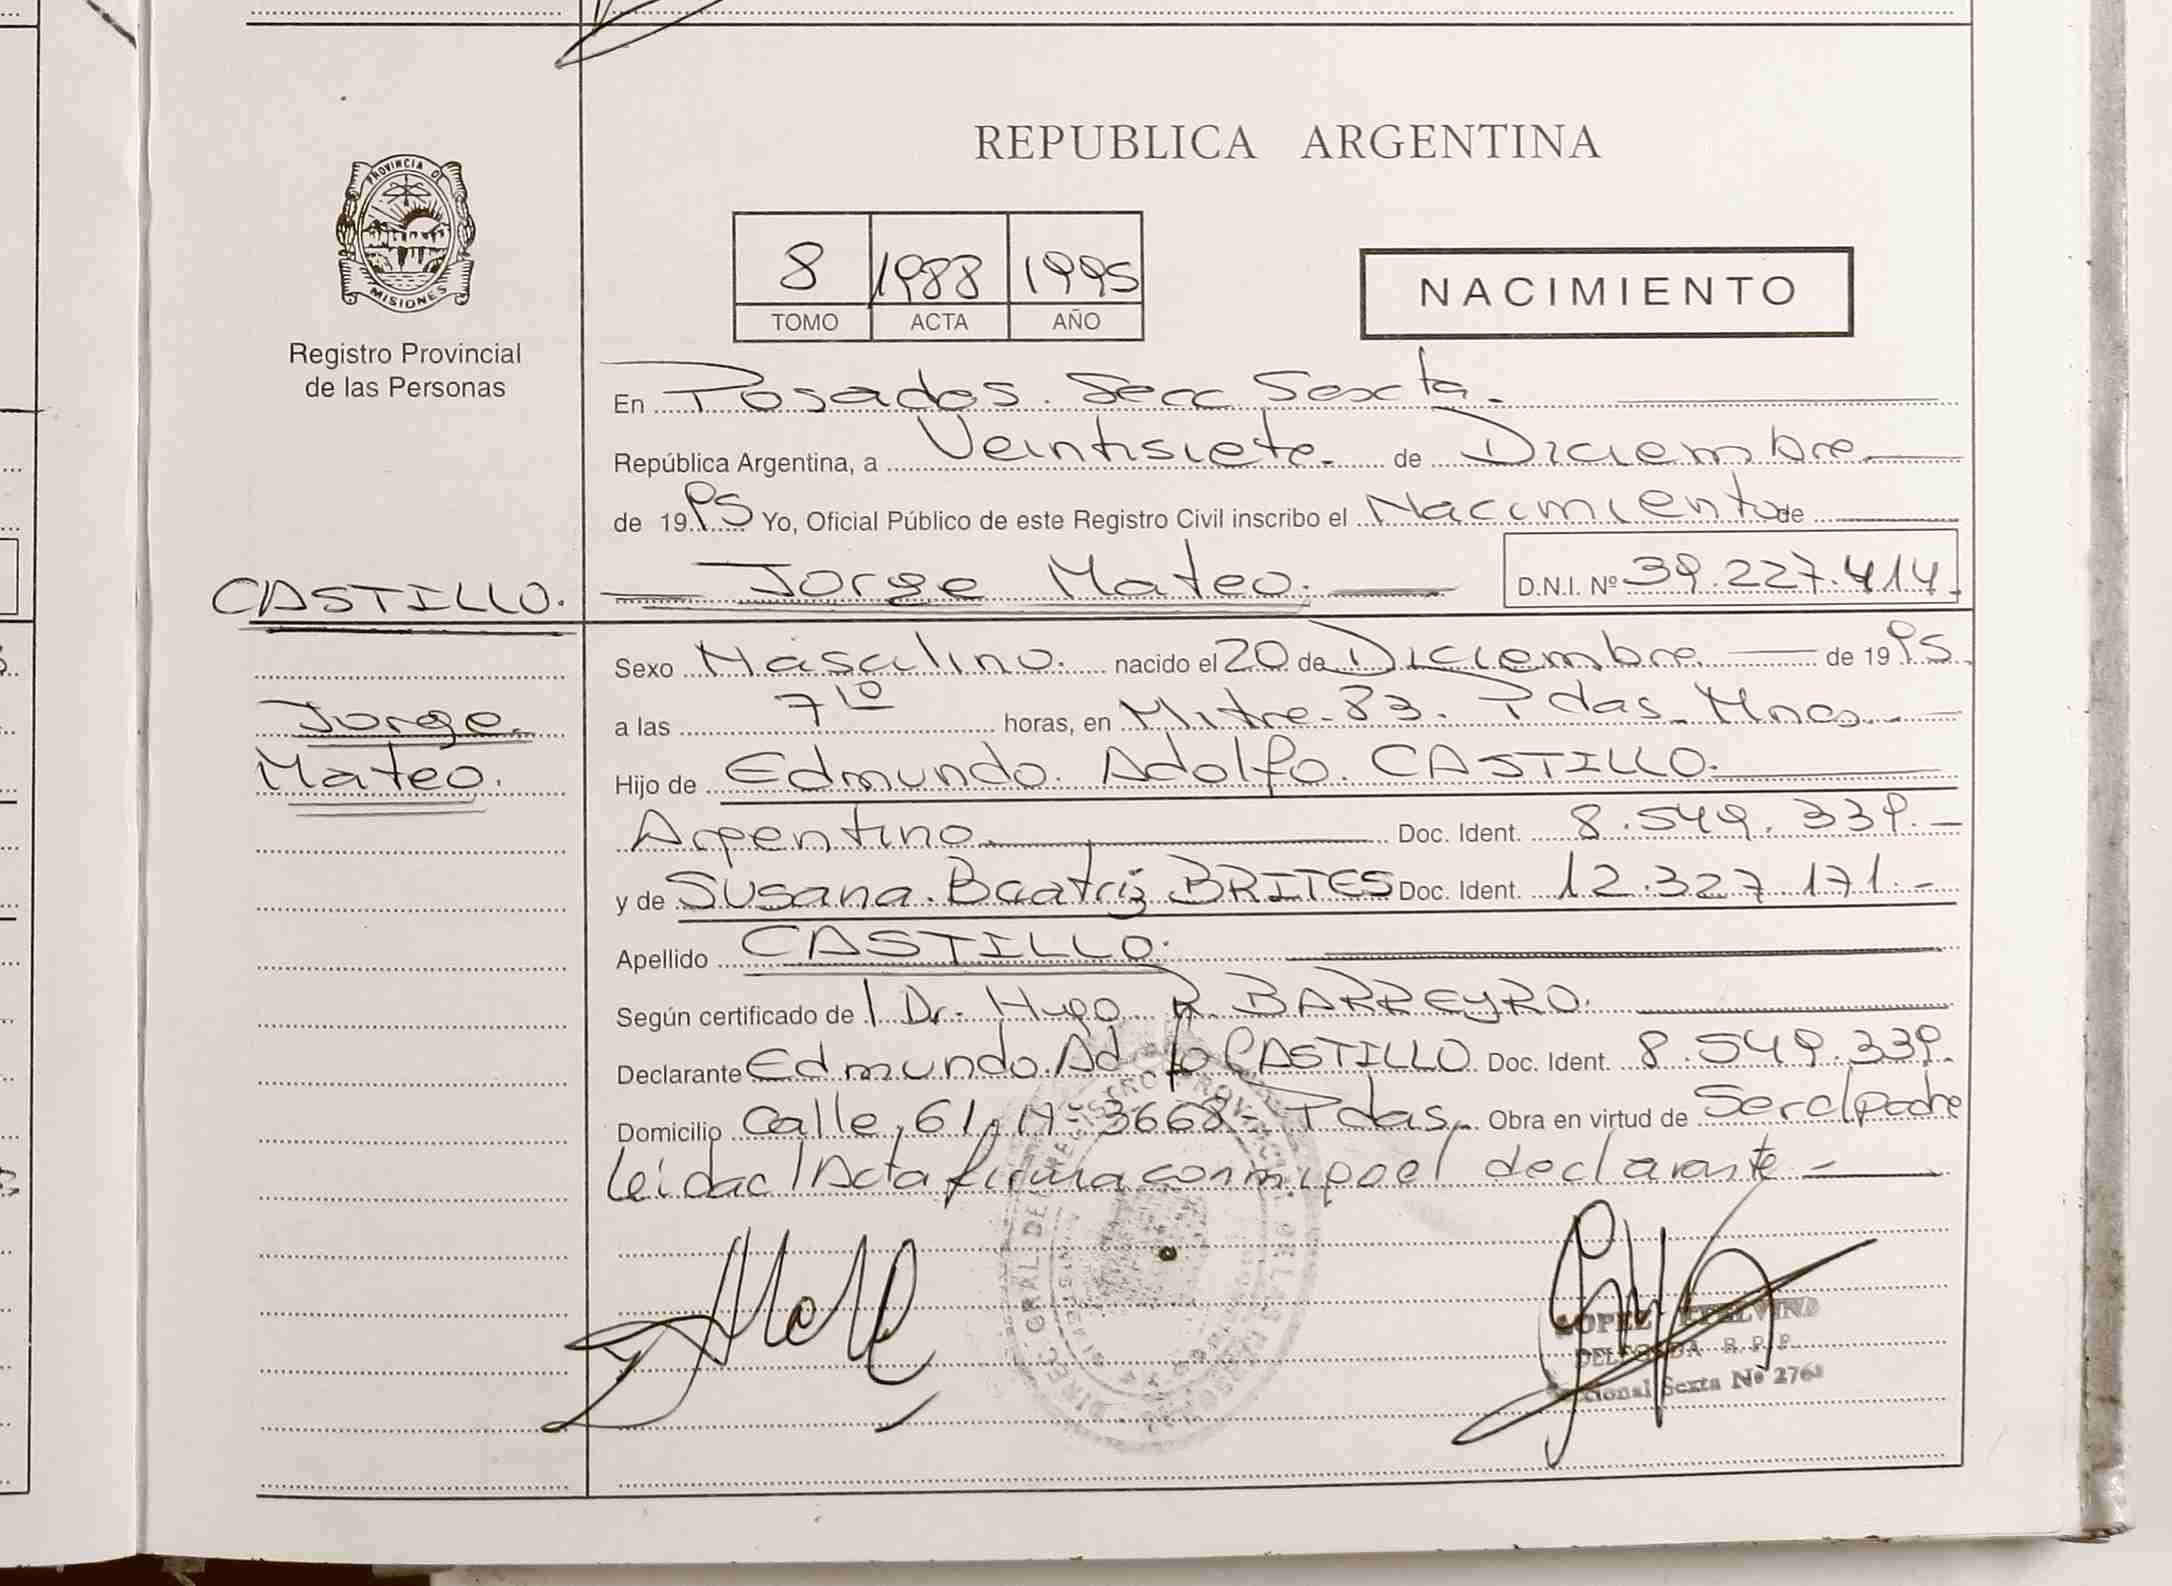 REPUBLICA ARGENTINA
PROVINCIA DE
MISIONES
Registro Provincial
de las Personas
8 1988 1995
TOMO ACTA AÑO
NACIMIENTO
En Posadas. Secc Sexta.
República Argentina, a Veintisiete. de Diciembre
de 1995 Yo, Oficial Público de este Registro Civil inscribo el Nacimiento de
CASTILLO. Jorge Mateo. D.N.I. Nº 39.227.414.
Sexo Masculino. nacido el 20 de Diciembre de 1995.
a las 7 10 horas, en Mitre. 83. Pdas. Mnes.
Jorge.
Mateo.
Hijo de Edmundo. Adolfo. CASTILLO.
Argentino. Doc. Ident. 8.549.339.-
y de Susana. Beatriz BRITES Doc. Ident. 12.327.171.-
Apellido CASTILLO.
Según certificado de l Dr. Hugo R. BARREYRO.
Declarante Edmundo. Adolfo CASTILLO Doc. Ident. 8.549.339.
Domicilio Calle, 61, Nº 3668- Pdas. Obra en virtud de Ser el padre
Leida el Acta firma con migo el declarante -
LOPEZ ETELVINA
DELEGADA R. P. P.
Seccional Sexta Nº 276